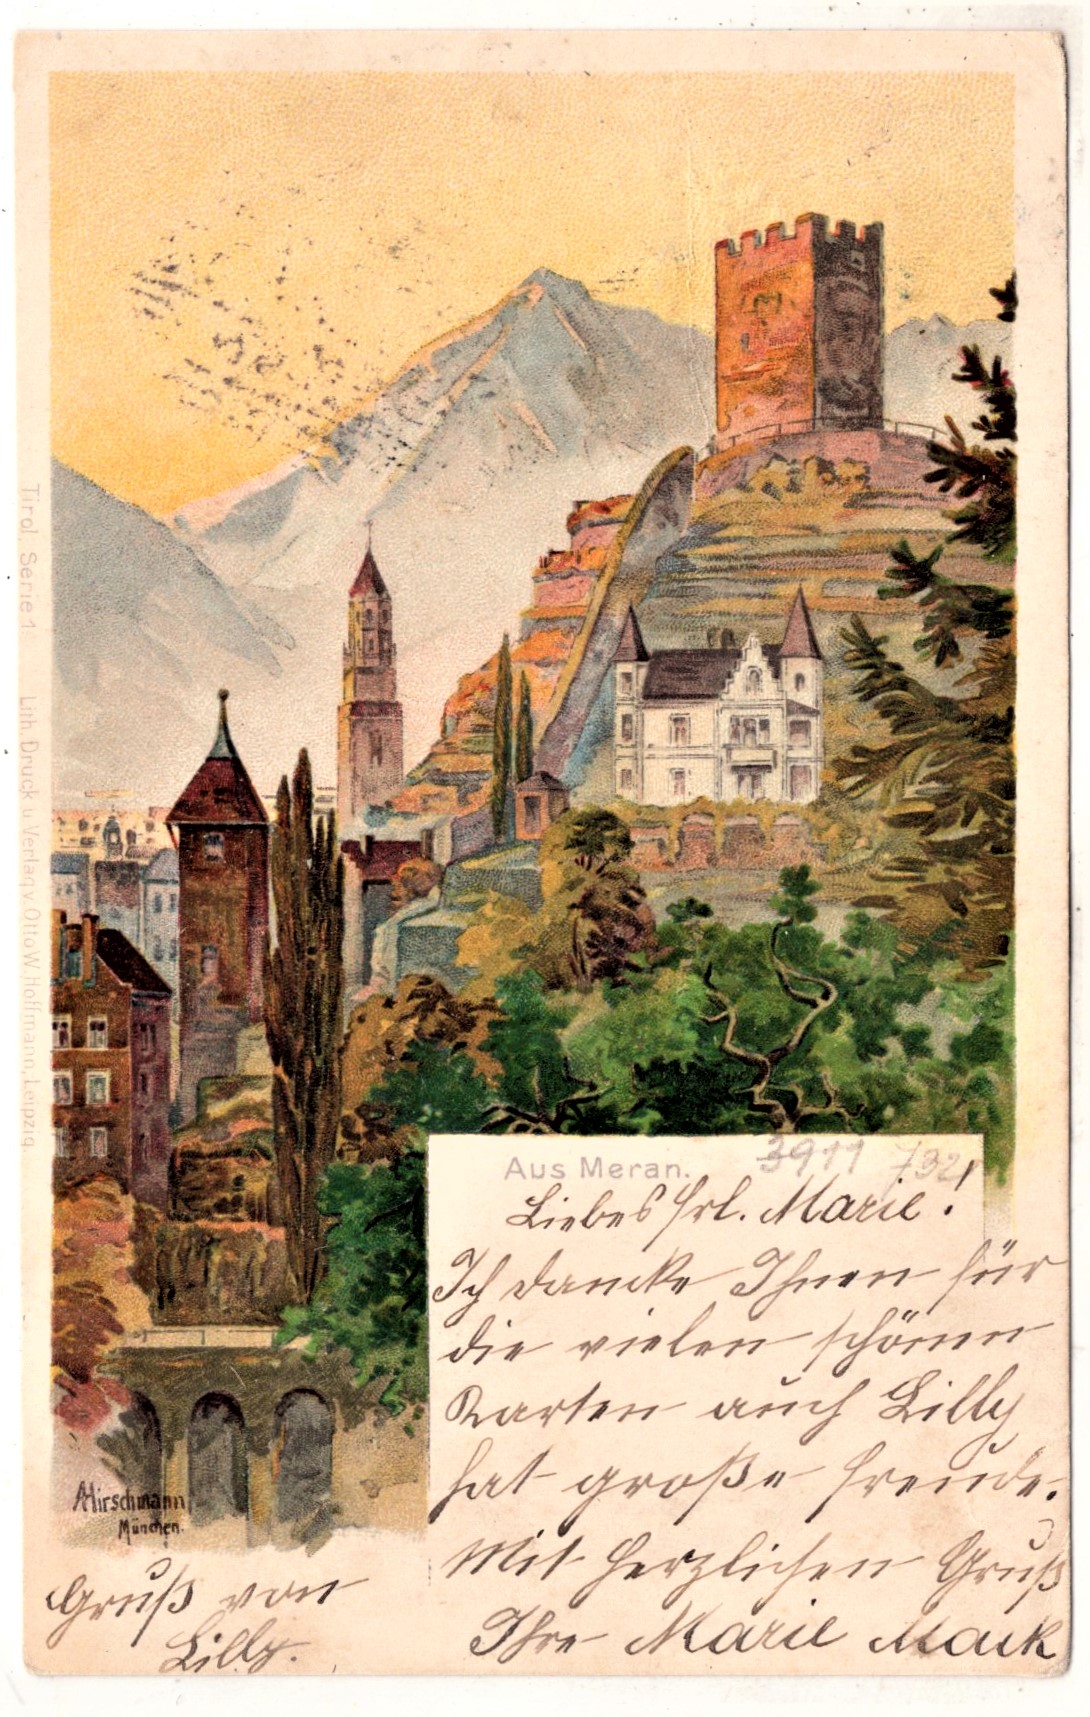 Tirol. Serie 1 Lith. Druck u. Verlag v. Otto W. Hoffmann, Leipzig.
AHirschmann
München.
Aus Meran. 3911 732
Liebes Frl. Marie!
Ich dancke Ihnen für
die vielen schönen
Karten auch Lilly
hat große Freude.
Mit herzlichen Gruß
Ihre Marie
Gruß von
Lilly.